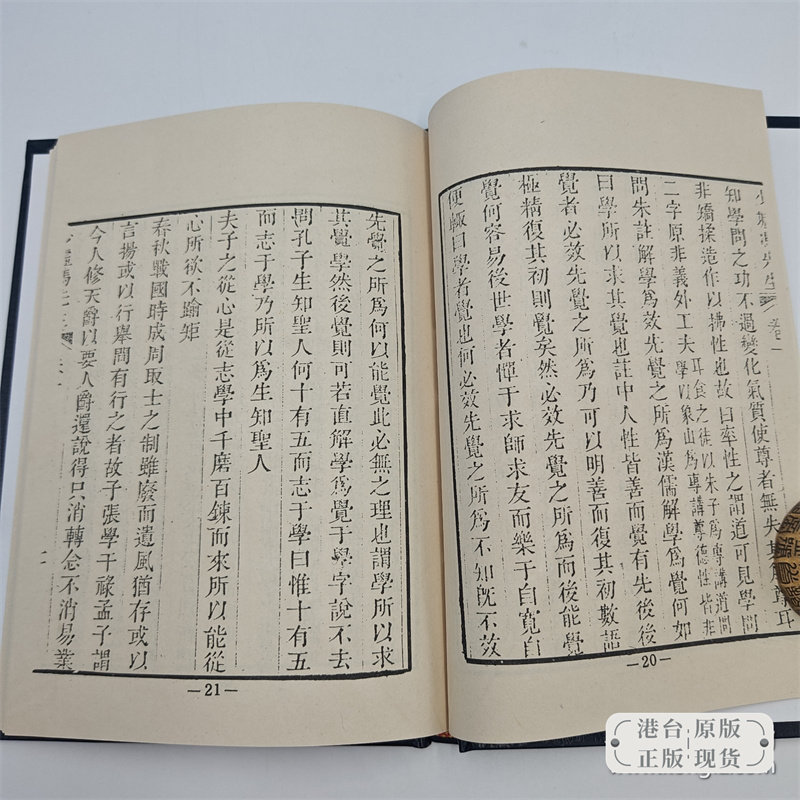 先生 卷一
知學問之功不過變化氣質使尊者無失其尊耳
非矯揉造作以拂性也故曰率性之謂道可見學問
二字原非義外工夫
耳食之徒以朱子爲專講道問
學以象山爲專講尊德性皆非
問朱註解學爲效先覺之所爲漢儒解學爲覺何如
曰學所以求其覺也註中人性皆善而覺有先後後
覺者必效先覺之所爲乃可以明善而復其初數語
極精復其初則覺矣然必效先覺之所爲而後能覺
覺何容易後世學者憚于求師求友而樂于自寬自
便輙曰學者覺也何必效先覺之所爲不知旣不效
—20—
先覺之所爲何以能覺此必無之理也謂學所以求
其覺學然後覺則可若直解學爲覺于學字說不去
問孔子生知聖人何十有五而志于學曰惟十有五
而志于學乃所以爲生知聖人
夫子之從心是從志學中千磨百鍊而來所以能從
心所欲不踰矩
春秋戰國時成周取士之制雖廢而遺風猶存或以
言揚或以行舉間有行之者故子張學干祿孟子謂
今人修天爵以要人爵還說得只消轉念不消易業
—21—
港台 原版
正版 现货